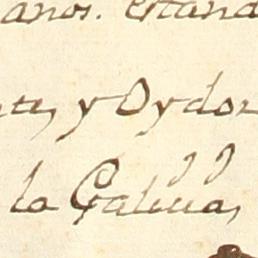 anos. estand
nte, y Oydor
la Galicia,